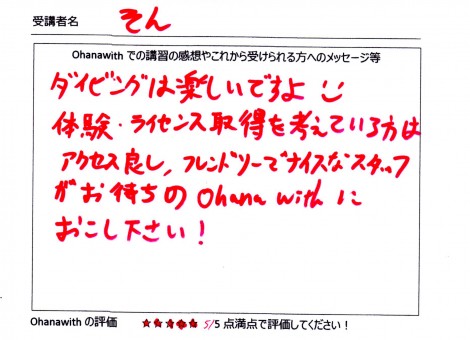 受講者名 そん
Ohanawith での講習の感想やこれから受けられる方へのメッセージ等
ダイビングは楽しいですよ
体験・ライセンス取得を考えている方は
アクセス良し、フレンドリーでナイスなスタッフ
がお待ちの Ohana with に
おこし下さい！
Ohanawith の評価 ★★★★★ 5/5 点満点で評価してください！